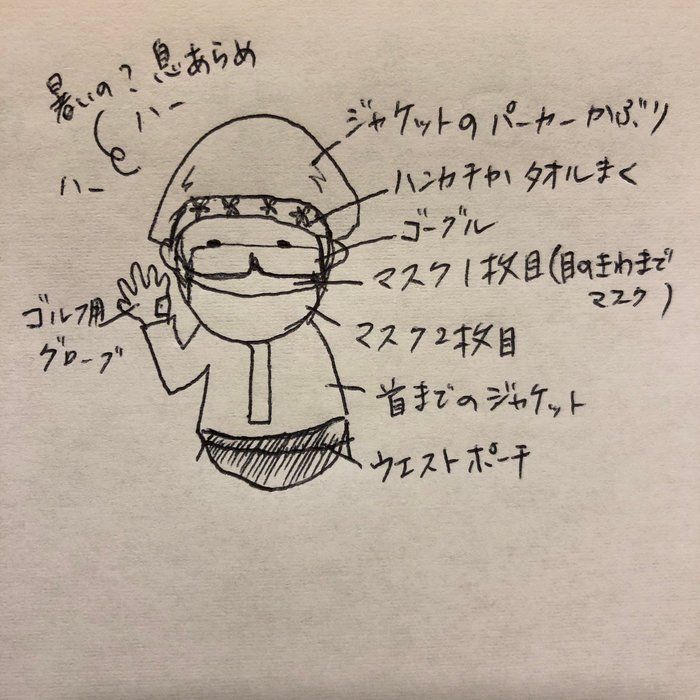 暑いの？息あらめ
ハー
ハー
ジャケットのパーカーかぶり
ハンカチかタオルまく
ゴーグル
マスク1枚目(目のきわまで
マスク)
マスク2枚目
首までのジャケット
ウエストポーチ
ゴルフ用
グローブ